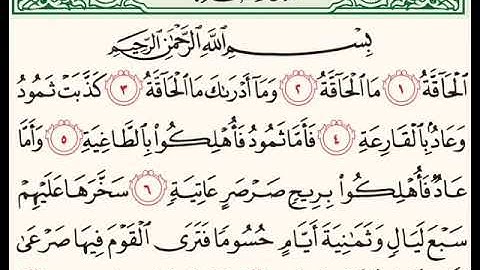 بِسْمِ اللَّهِ الرَّحْمَٰنِ الرَّحِيمِ
الْحَاقَّةُ ١ مَا الْحَاقَّةُ ٢ وَمَا أَدْرَىٰكَ مَا الْحَاقَّةُ ٣ كَذَّبَتْ ثَمُودُ
وَعَادٌۢ بِالْقَارِعَةِ ٤ فَأَمَّا ثَمُودُ فَأُهْلِكُوا۟ بِالطَّاغِيَةِ ٥ وَأَمَّا
عَادٌ فَأُهْلِكُوا۟ بِرِيحٍ صَرْصَرٍ عَاتِيَةٍ ٦ سَخَّرَهَا عَلَيْهِمْ
سَبْعَ لَيَالٍ وَثَمَٰنِيَةَ أَيَّامٍ حُسُومًا فَتَرَى الْقَوْمَ فِيهَا صَرْعَىٰ